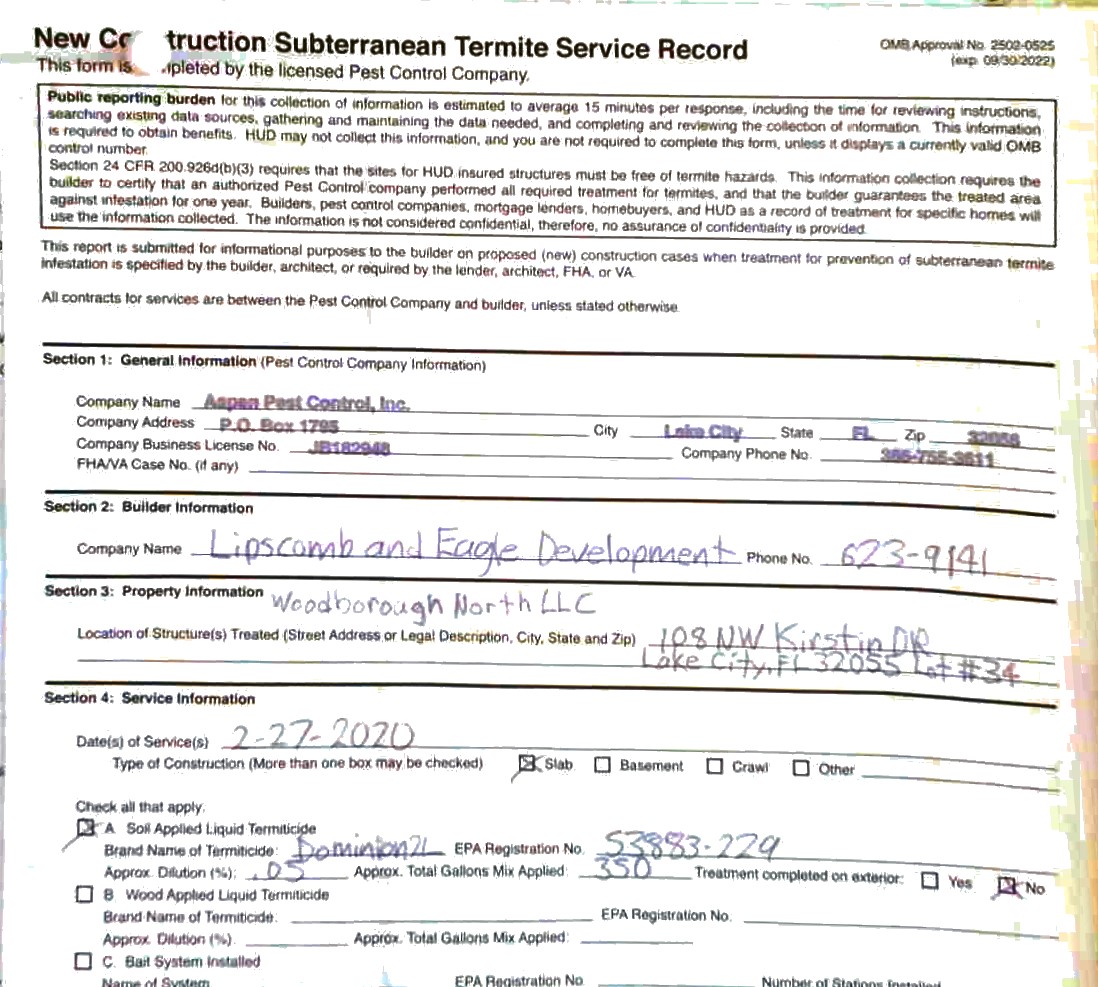 New Co truction Subterranean Termite Service Record
OMB Approval No. 2502-0525
(exp. 09/30/2022)
This form is mpleted by the licensed Pest Control Company.
Public reporting burden for this collection of information is estimated to average 15 minutes per response, including the time for reviewing instructions,
searching existing data sources, gathering and maintaining the data needed, and completing and reviewing the collection of information. This information
is required to obtain benefits. HUD may not collect this information, and you are not required to complete this form, unless it displays a currently valid OMB
control number.
Section 24 CFR 200.926d(b)(3) requires that the sites for HUD insured structures must be free of termite hazards. This information collection requires the
builder to certify that an authorized Pest Control company performed all required treatment for termites, and that the builder guarantees the treated area
against infestation for one year. Builders, pest control companies, mortgage lenders, homebuyers, and HUD as a record of treatment for specific homes will
use the information collected. The information is not considered confidential, therefore, no assurance of confidentiality is provided.
This report is submitted for informational purposes to the builder on proposed (new) construction cases when treatment for prevention of subterranean termite
infestation is specified by the builder, architect, or required by the lender, architect, FHA, or VA.
All contracts for services are between the Pest Control Company and builder, unless stated otherwise.
Section 1: General Information (Pest Control Company Information)
Company Name Aspen Pest Control, Inc.
Company Address P.O. Box 1795 City Lake City State FL Zip 32056
Company Business License No. JB182948 Company Phone No. 386-755-3611
FHA/VA Case No. (if any)
Section 2: Builder Information
Company Name Lipscomb and Eagle Development Phone No. 623-9141
Section 3: Property Information Woodborough North LLC
Location of Structure(s) Treated (Street Address or Legal Description, City, State and Zip) 108 NW Kirstin DR
Lake City, FL 32055 Lot #34
Section 4: Service Information
Date(s) of Service(s) 2-27-2020
Type of Construction (More than one box may be checked) Slab Basement Crawl Other
Check all that apply.
A Soil Applied Liquid Termiticide
Brand Name of Termiticide: Dominion 2L EPA Registration No. 53883-229
Approx. Dilution (%): .05 Approx. Total Gallons Mix Applied: 350 Treatment completed on exterior: Yes No
B Wood Applied Liquid Termiticide
Brand Name of Termiticide: EPA Registration No.
Approx. Dilution (%). Approx. Total Gallons Mix Applied:
C. Bait System Installed
Name of System EPA Registration No. Number of Stations Installed